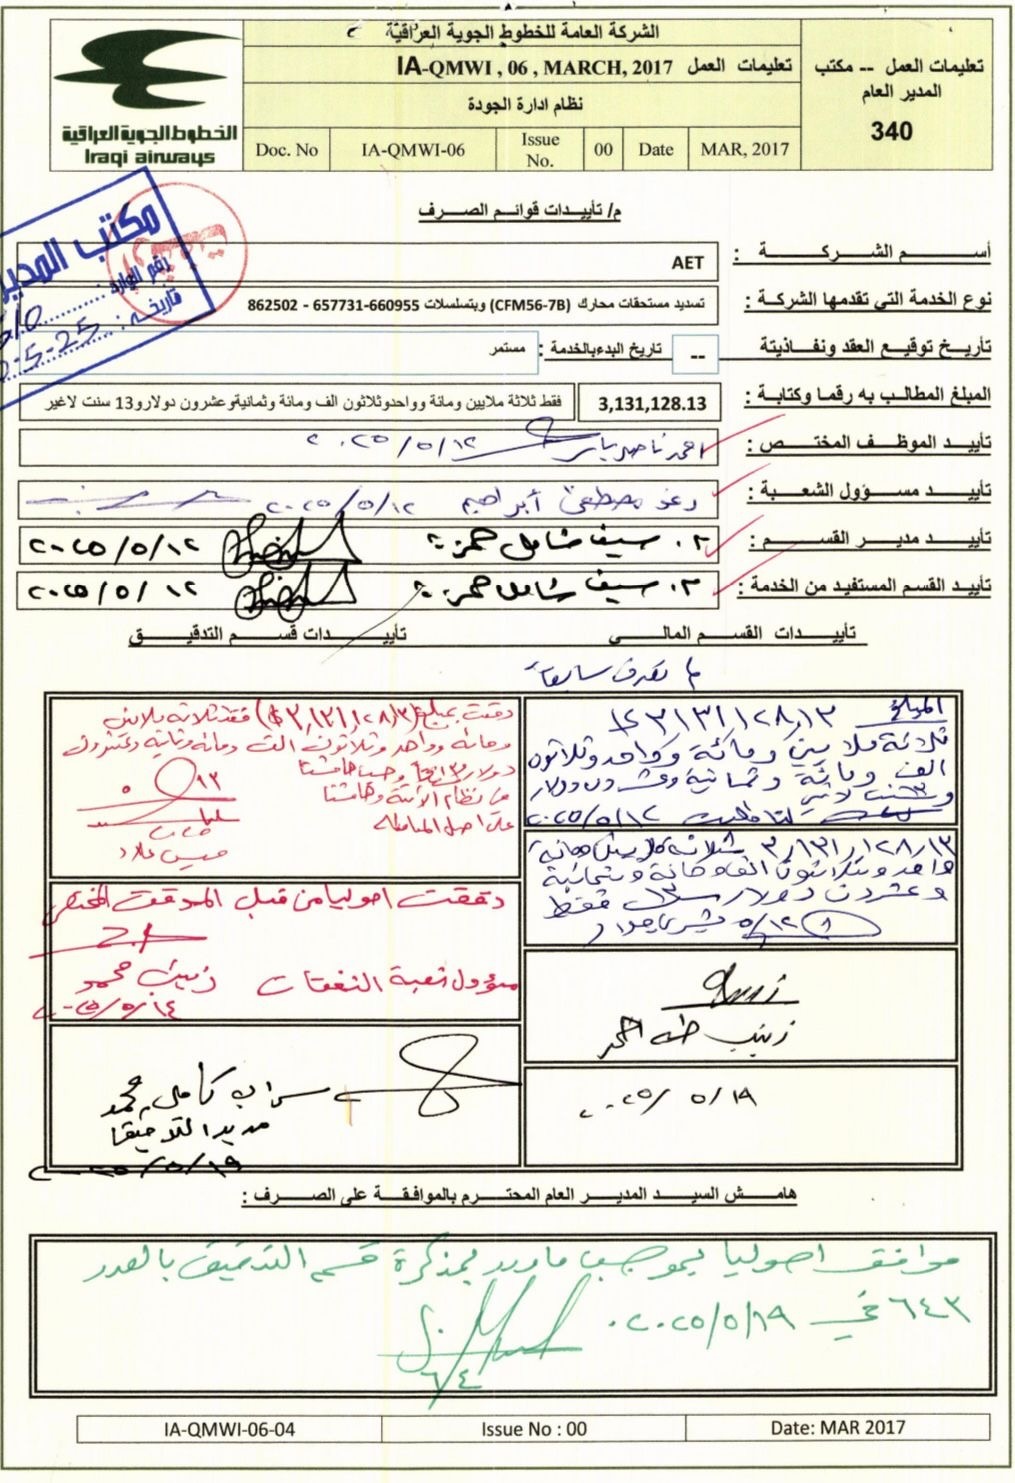 الشركة العامة للخطوط الجوية العراقية
تعليمات العمل -- مكتب
المدير العام
340
تعليمات العمل IA-QMWI , 06 , MARCH, 2017
نظام ادارة الجودة
الخطوط الجوية العراقية
Iraqi airways
Doc. No IA-QMWI-06 Issue No. 00 Date MAR, 2017
مكتب المدير
رقم الوارد
تاريخه :
5-25
م/ تأييدات قوائم الصرف
أسم الشركة :
AET
نوع الخدمة التي تقدمها الشركة :
تسديد مستحقات محارك (CFM56-7B) وبتسلسلات 660955-657731 - 862502
تأريخ توقيع العقد ونفاذيتة
--
تاريخ البدءبالخدمة :
مستمر
المبلغ المطالب به رقما وكتابة :
3,131,128.13
فقط ثلاثة ملايين ومانة وواحدوثلاثون الف ومانة وثمانيةوعشرون دولارو13 سنت لاغير
تأييد الموظف المختص :
احمد ناصر ٢٠٢٥/٥/١٢
تأييد مسؤول الشعبة :
رغد مصطفى أبراهيم ٢٠٢٥/٥/١٢
تأييد مدير القسم :
م. سيف شامل حمزة ٢٠٢٥/٥/١٢
تأييد القسم المستفيد من الخدمة :
م. سيف شامل حمزة ٢٠٢٥/٥/١٢
تأييدات القسم المالي
تأييدات قسم التدقيق
لم تصرف سابقا
المبلغ ٣١٣١١٢٨,١٣
ثلاثة ملايين ومائة وواحد وثلاثون
الف ومائة وثمانية وعشرون دولار
٢٠٢٥/٥/١٢
٣/١٣١/١٢٨/١٣ ثلاثة ملايين ومائة
واحد وثلاثون الف ومائة وثمانية
وعشرون دولار فقط
٥/١٢
زينب طه احمد
٢٠٢٥/٥/١٩
دققت بمبلغ (٣,١٣١,١٢٨/١٣$) فقط ثلاثة ملايين
ومائة وواحد وثلاثون الف ومائة وثمانية وعشرون
دولار
على اصل المطالبة
دققت اصوليا من قبل المدقق المختص
مسؤول شعبة النفقات زينب محمد
٢٠٢٥/٥/١٤
سراب كامل محمد
مدير التدقيق
٢٠٢٥/٥/١٩
هامش السيد المدير العام المحترم بالموافقة على الصرف :
موافق اصوليا بموجب ماورد بمذكرة قسم التدقيق بالعدد
٦٤٣ في ٢٠٢٥/٥/١٩.
٦/٤
IA-QMWI-06-04 Issue No : 00 Date: MAR 2017